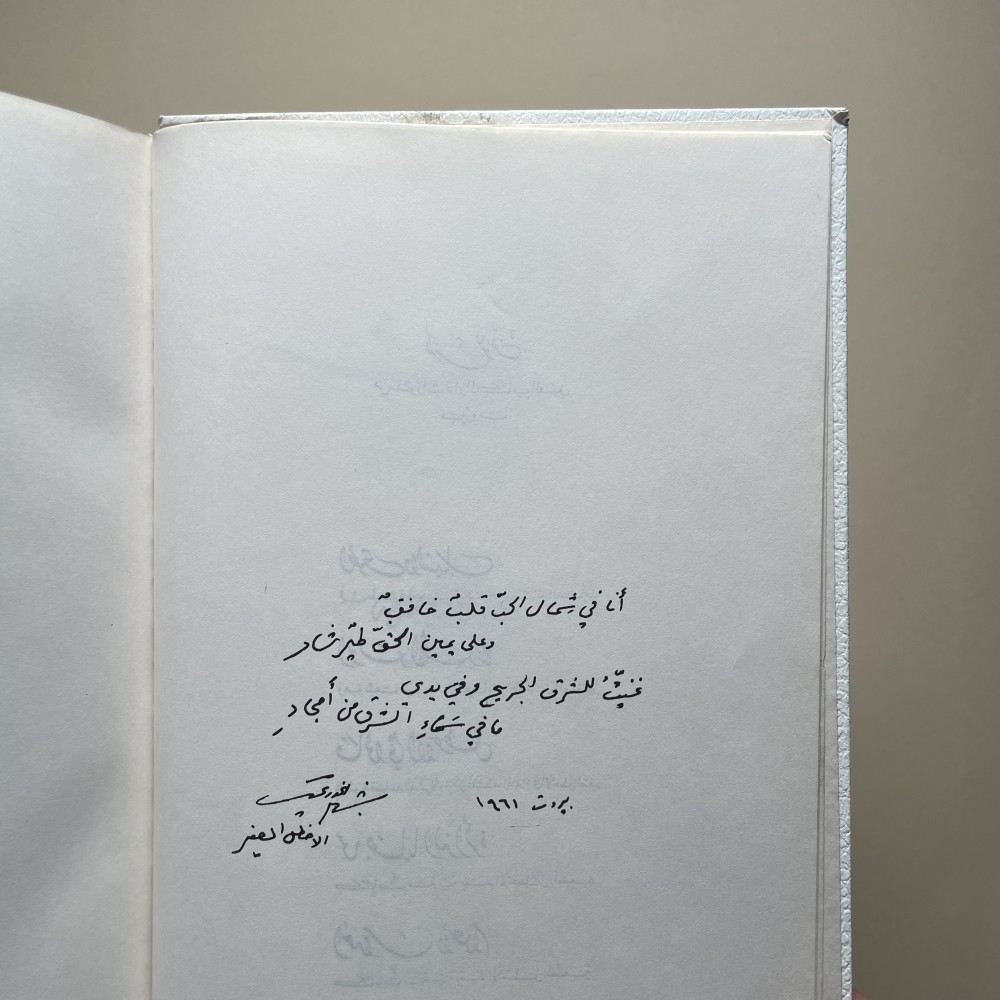 أنا في شمال الحبّ قلبٌ خافقٌ
وعلى يمين الحقّ طيرٌ شادِ
غنّيتُ للشرق الجريح وفي يدي
ما في سَماءِ الشرق من أمجادِ
بيروت ١٩٦١
بشارة الخوري
الاخطل الصغير